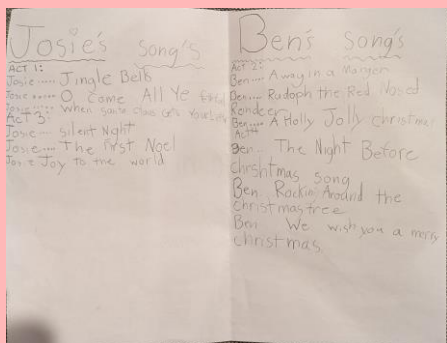 Josie's Song's
Act 1:
Josie ..... Jingle Bells
Josie ..... O Come All Ye
Josie ..... When Santa Claus Gets Your
Act 3:
Josie ... Silent Night
Josie .... The First Noel
Josie Joy to the world
Ben's Song's
Act 2:
Ben.... Away in a Manger
Ben.... Rudoph the Red Nosed
Reindeer
Ben.... A Holly Jolly Christmas
Act 4
Ben... The Night Before
Chrishtmas song
Ben Rockin Around the
christmas tree
Ben We wish you a merry
christmas